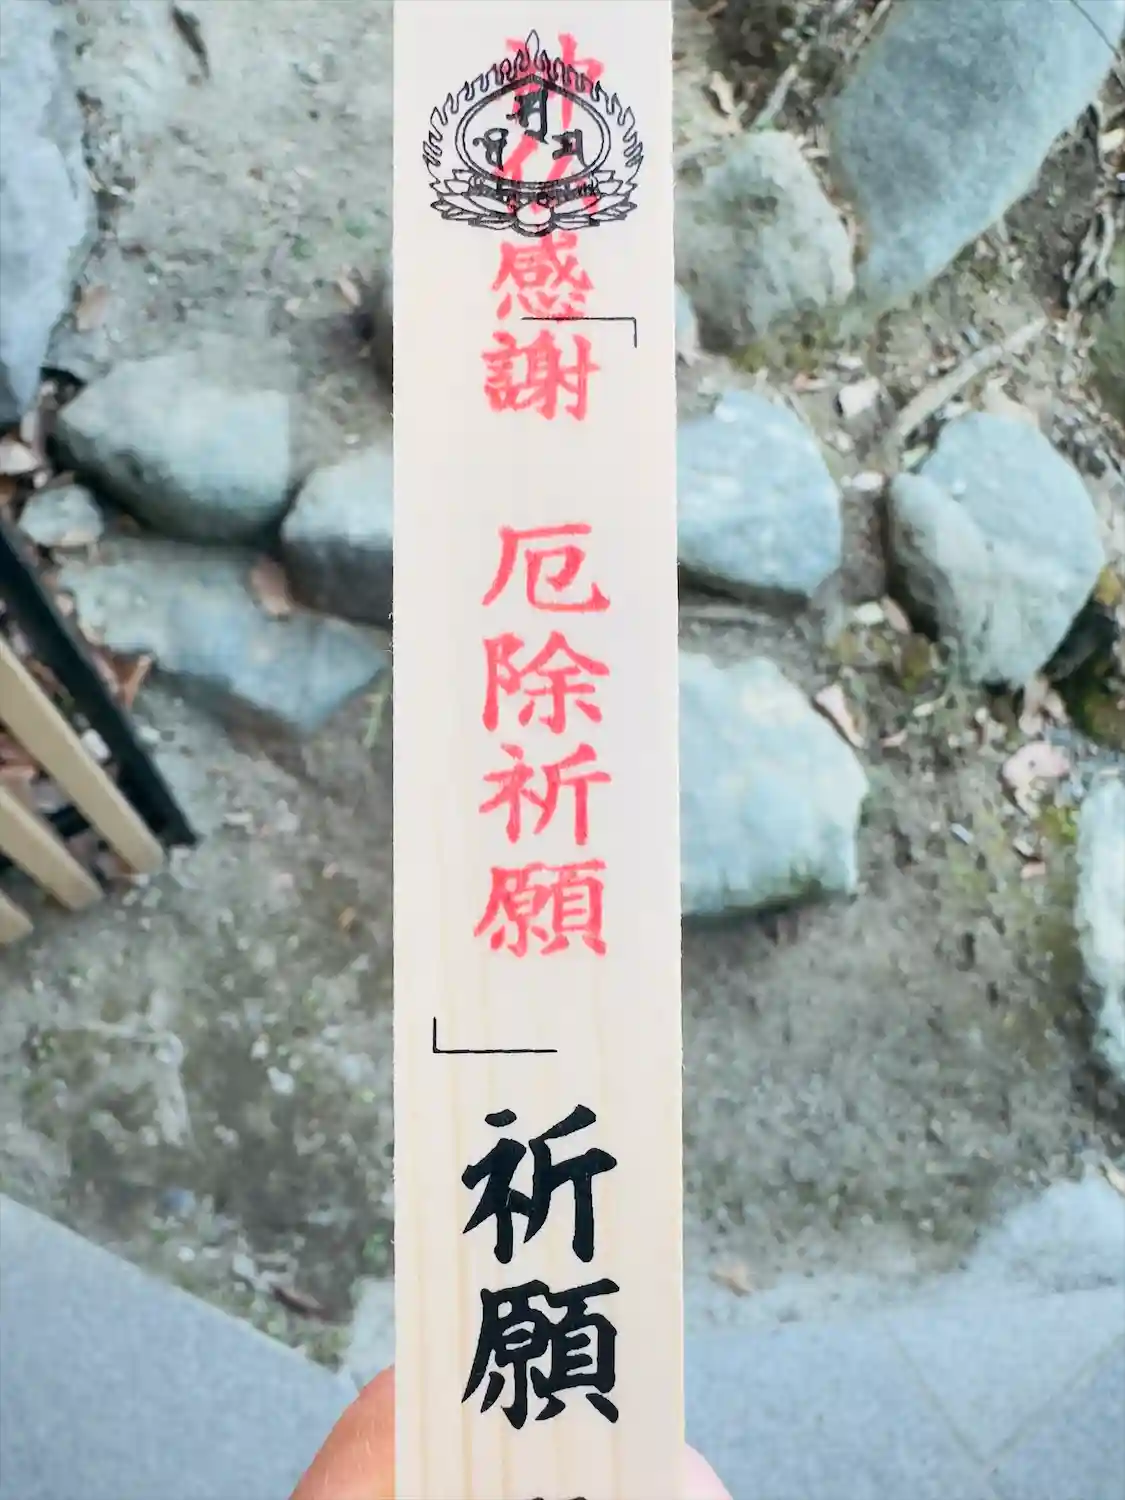 神仏感謝 厄除祈願
祈願